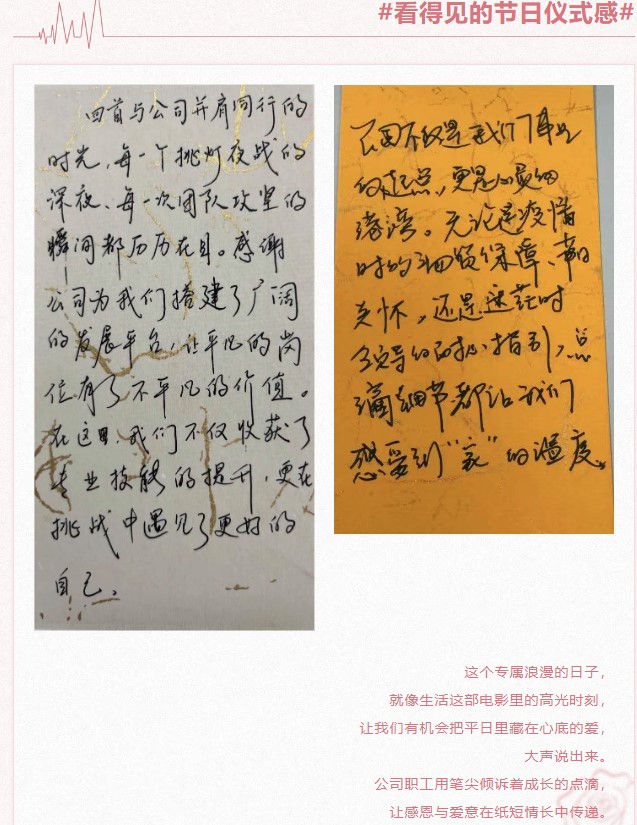 #看得见的节日仪式感#
回首与公司并肩同行的
时光,每一个挑灯夜战的
深夜、每一次团队攻坚的
瞬间都历历在目。感谢
公司为我们搭建了广阔
的发展平台,让平凡的岗
位有了不平凡的价值。
在这里我们不仅收获了
专业技能的提升,更在
挑战中遇见了更好的
自己。
公司不仅是我们事业
的起点,更是心灵的
港湾。无论是疫情
时的物资保障、节日
关怀,还是迷茫时
领导的耐心指引,点
滴细节都让我们
感受到“家”的温度。
这个专属浪漫的日子,
就像生活这部电影里的高光时刻,
让我们有机会把平日里藏在心底的爱,
大声说出来。
公司职工用笔尖倾诉着成长的点滴,
让感恩与爱意在纸短情长中传递。